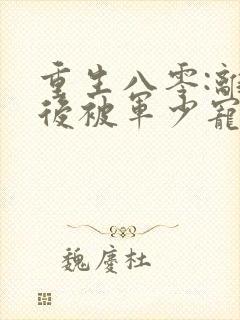 重生八零:離
後被軍少寵
魏慶杜